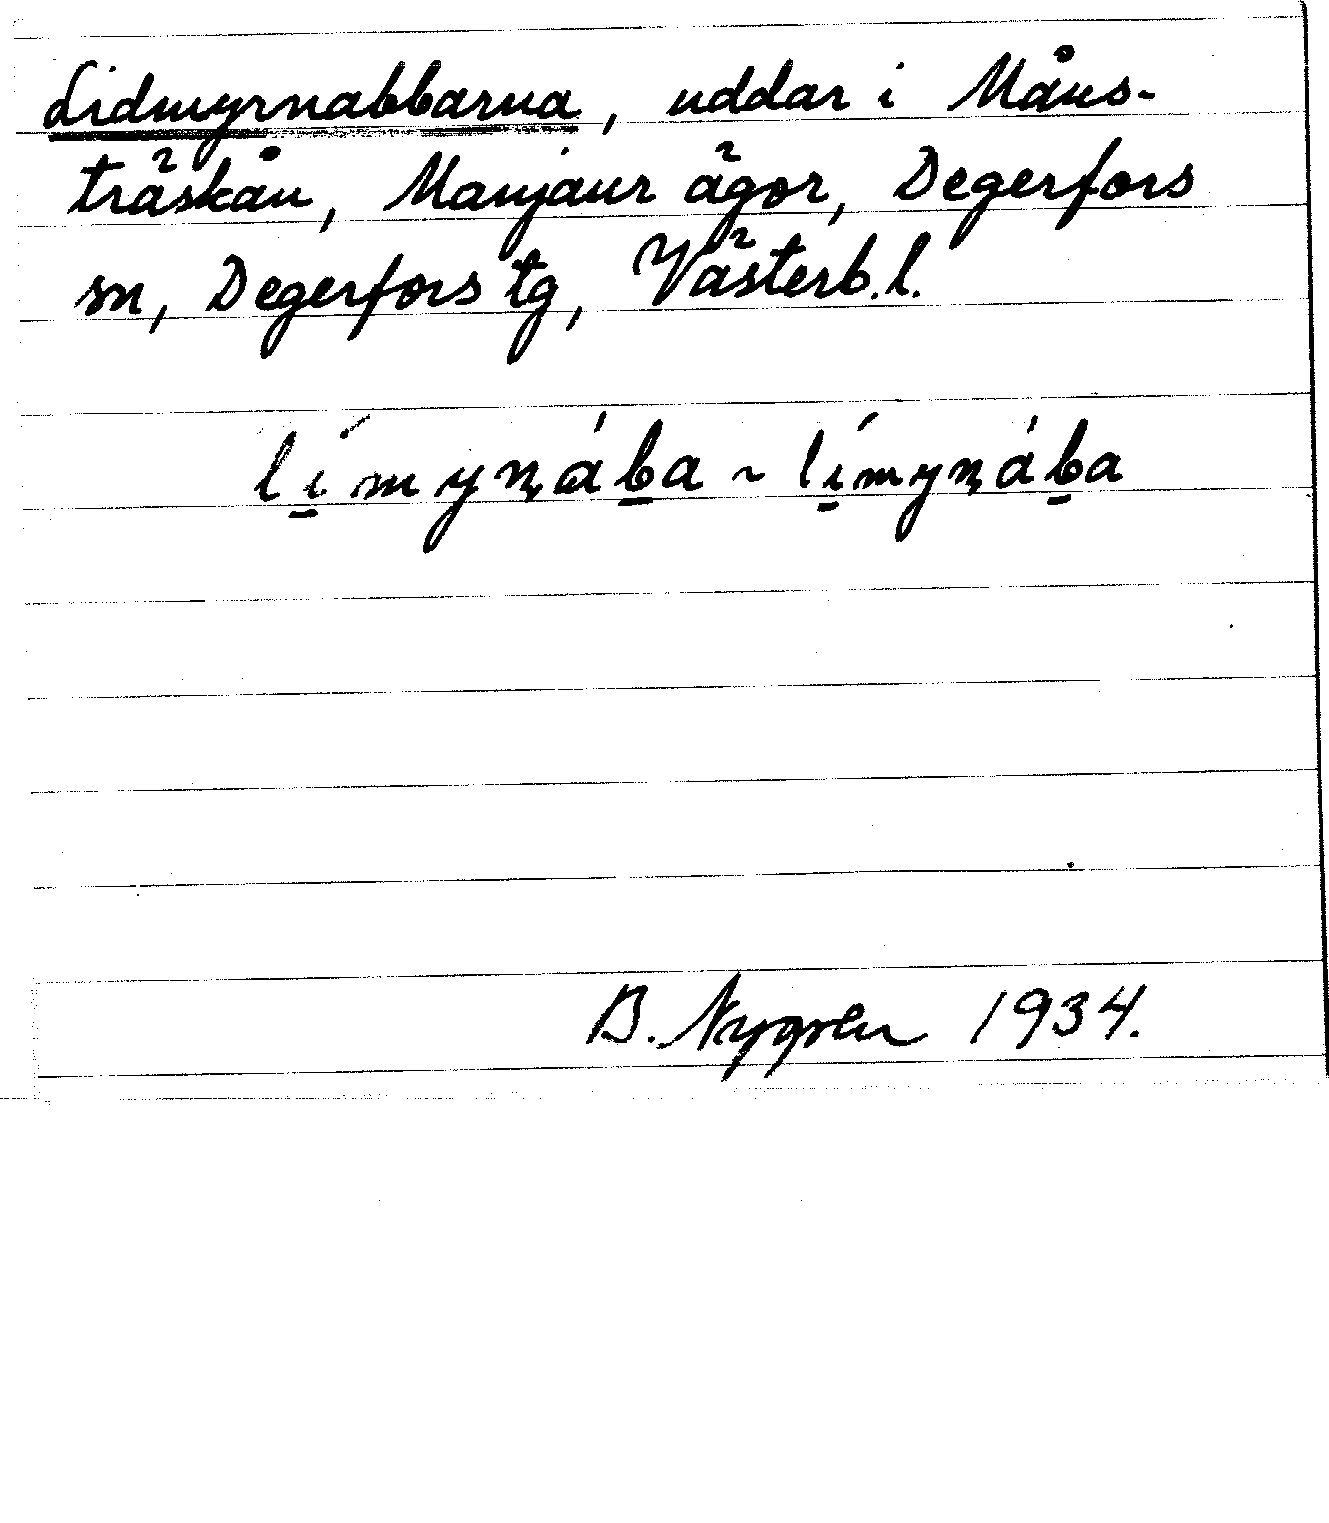 Lidmyrnabbarna, uddar i Måns-
träskån, Manjaur ägor, Degerfors
sn, Degerfors tg, Västerb.l.
lí̱myn̨áḇa ~ lí̱myn̨áḇa
B. Nygren 1934.